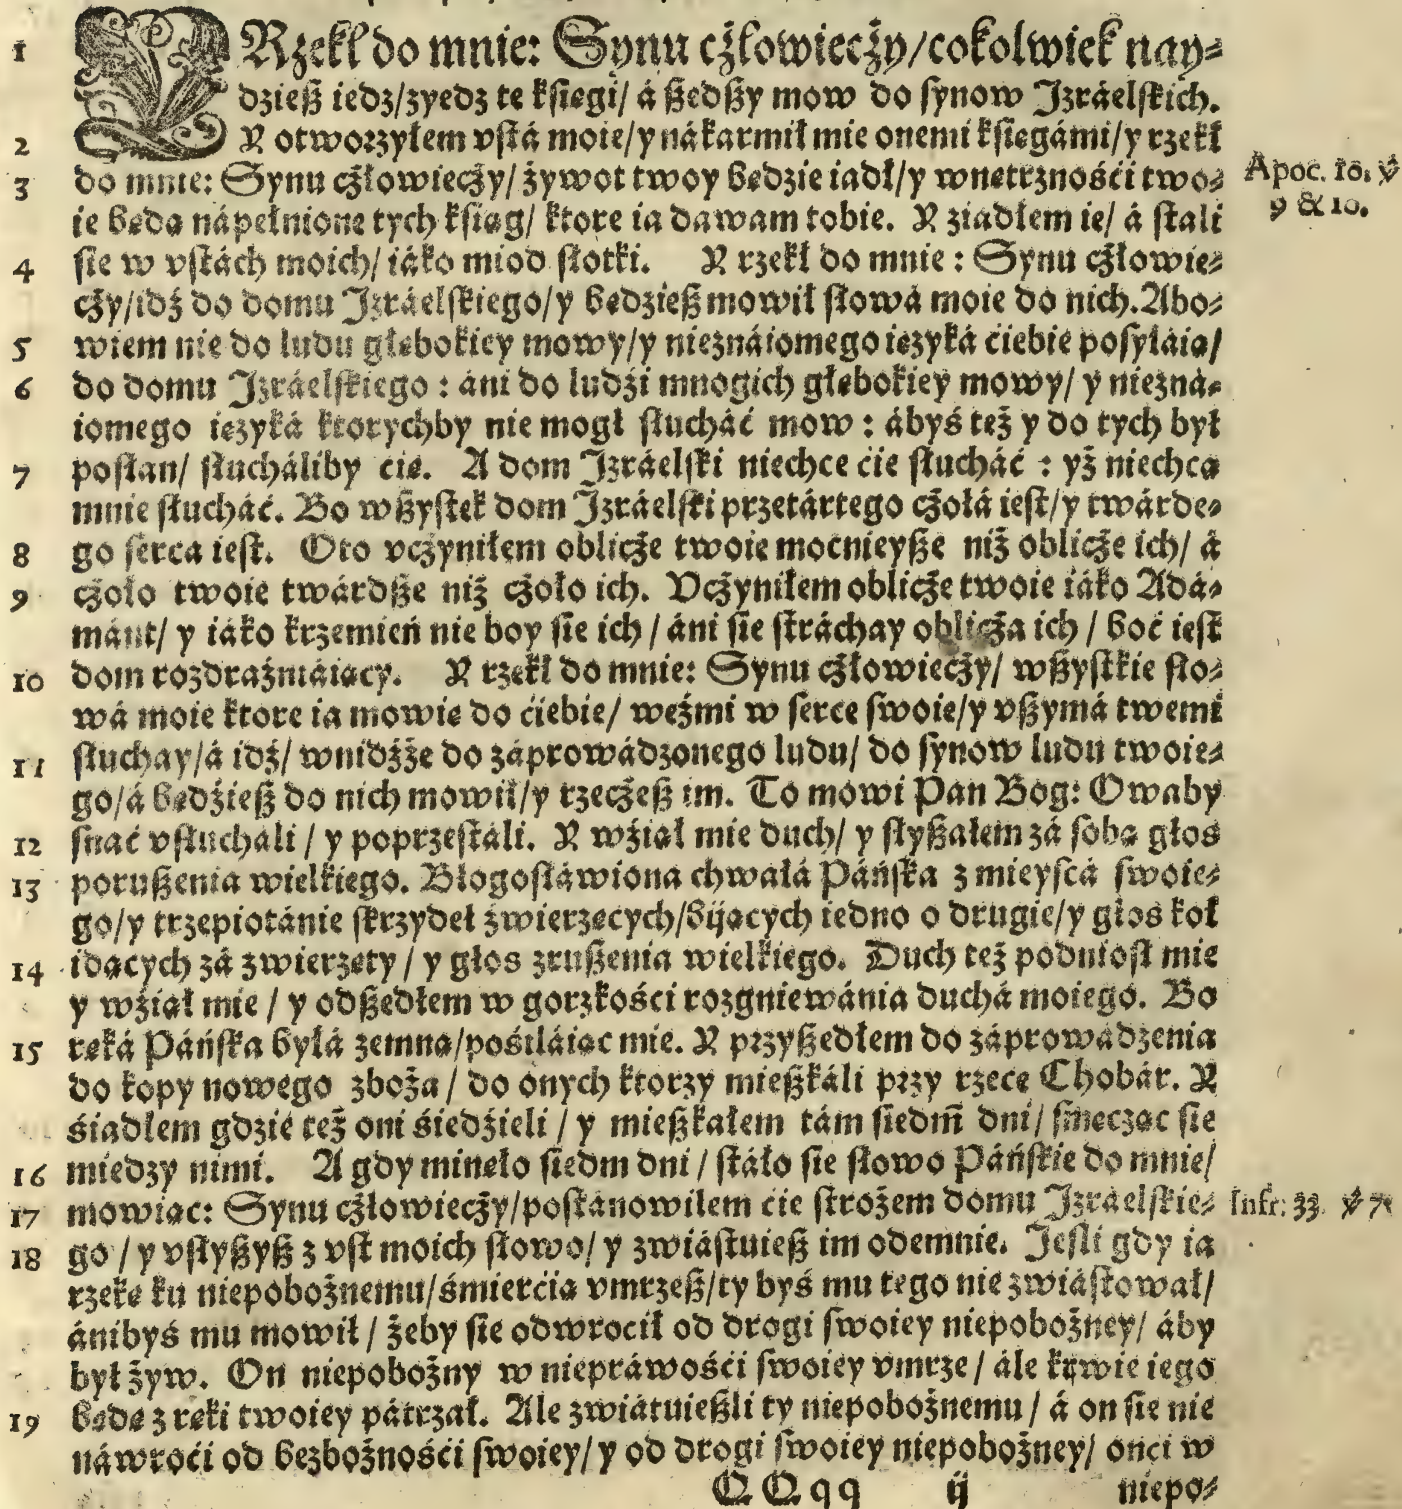 1 Y Rzekł do mnie: Synu cżłowiecży/cokolwiek nay⸗
dzieß iedz/zyedz te kſięgi/ á ßedßy mow do ſynow Jzráelſkich.
2 Y otworzyłem vſtá moie/y nákarmił mie onemi kſięgámi/y rzekł
3 do mnie: Synu cżłowiecży/ żywot twoy będzie iadł/y wnętrznośći two⸗ Apoc. 10. ℣
ie będą nápełnione tych kſiąg/ ktore ia dawam tobie. Y ziadłem ie/ á ſtáli 9 & 10.
4 ſie w vſtách moich/ iáko miod ſłodki. Y rzekł do mnie: Synu cżłowie⸗
cży/idź do domu Jzráelſkiego/y będzieß mowił ſłowá moie do nich. Abo⸗
5 wiem nie do ludu głębokiey mowy/y nieznáiomego ięzyká ćiebie poſyłáią/
6 do domu Jzráelſkiego: áni do ludźi mnogich głębokiey mowy/ y niezná⸗
iomego ięzyká ktorychby nie mogł ſłucháć mow: ábyś też y do tych był
7 poſłan/ ſłucháliby cię. A dom Jzráelſki niechce ćie ſłucháć: yż niechcą
mnie ſłucháć. Bo wßyſtek dom Jzráelſki przetártego cżołá ieſt/y twárde⸗
8 go ſerca ieſt. Oto vcżyniłem oblicże twoie mocnieyße niż oblicże ich/ á
9 cżoło twoie twárdße niż cżoło ich. Vcżyniłem oblicże twoie iáko Adá⸗
mánt/ y iáko krzemień nie boy ſie ich/ áni ſie ſtráchay oblicża ich/ boć ieſt
10 dom rozdraźniáiący. Y rzekł do mnie: Synu cżłowiecży/ wßyſtkie ſło⸗
wá moie ktore ia mowię do ćiebie/ weźmi w ſerce ſwoie/y vßymá twemi
11 ſłuchay/á idź/ wnidźże do záprowádzonego ludu/ do ſynow ludu twoie⸗
go/á będźieß do nich mowił/y rzecżeß im. To mowi Pan Bog: Owaby
12 ſnać vſłuchali/ y poprzeſtáli. Y wźiął mie duch/ y ſłyßałem zá ſobą głos
13 porußenia wielkiego. Błogoſłáwiona chwałá Páńſka z mieyſcá ſwoie⸗
go/y trzepiotánie ſkrzydeł źwierzęcych/biących iedno o drugie/y głos koł
14 idących zá zwierzęty/ y głos zrußenia wielkiego. Duch też podnioſł mie
y wźiął mie/ y odßedłem w gorzkośći rozgniewánia duchá moiego. Bo
15 ręká Páńſka byłá zemną/pośiláiąc mie. Y przyßedłem do záprowádzenia
do kopy nowego zboża/ do onych ktorzy mießkáli przy rzece Chobár. Y
śiadłem gdzie też oni śiedźieli/ y mießkałem tám ſiedm dni/ ſmęcząc ſie
16 miedzy nimi. A gdy minęło ſiedm dni/ ſtáło ſie ſłowo Páńſkie do mnie/
17 mowiąc: Synu cżłowiecży/poſtánowiłem cię ſtrożem domu Jzráelſkie⸗ Infr. 33. ℣ 7.
18 go/ y vſłyßyß z vſt moich ſłowo/ y zwiáſtuieß im odemnie. Jeſli gdy ia
rzekę ku niepobożnemu/śmierćią vmrzeß/ty byś mu tego nie zwiáſtował/
ánibyś mu mowił/ żeby ſie odwroćił od drogi ſwoiey niepobożney/ áby
był żyw. On niepobożny w niepráwośći ſwoiey vmrze/ ále krwie iego
19 będę z ręki twoiey pátrzał. Ale zwiátuießli ty niepobożnemu/ á on ſie nie
náwroći od bezbożnośći ſwoiey/y od drogi ſwoiey niepobożney/ onći w
QQqq ij niepo⸗